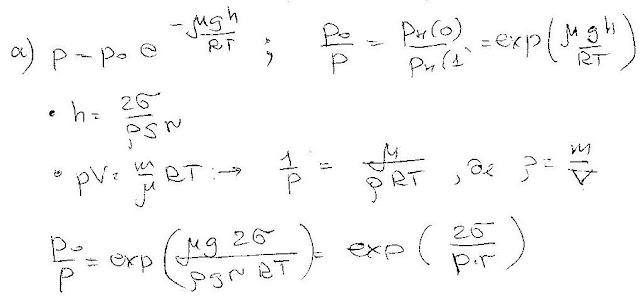 а) p = p₀ e^(-μgh/RT) ; p₀/p = pн(0)/pн(1) = exp(μgh/RT)
• h = 2σ/ρgr
• pV = m/μ RT → 1/p = μ/ρRT , де ρ = m/V
p₀/p = exp(μg 2σ/ρgr RT) = exp(2σ/p·r)